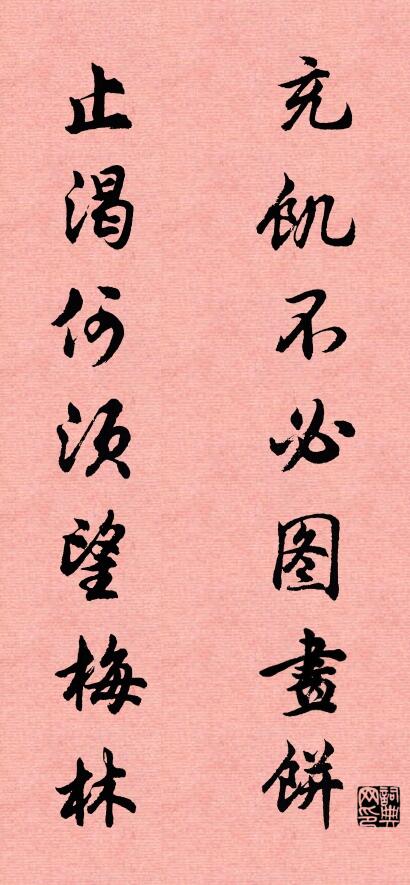 充飢不必图畫餅
止渴何须望梅林
詞典网印